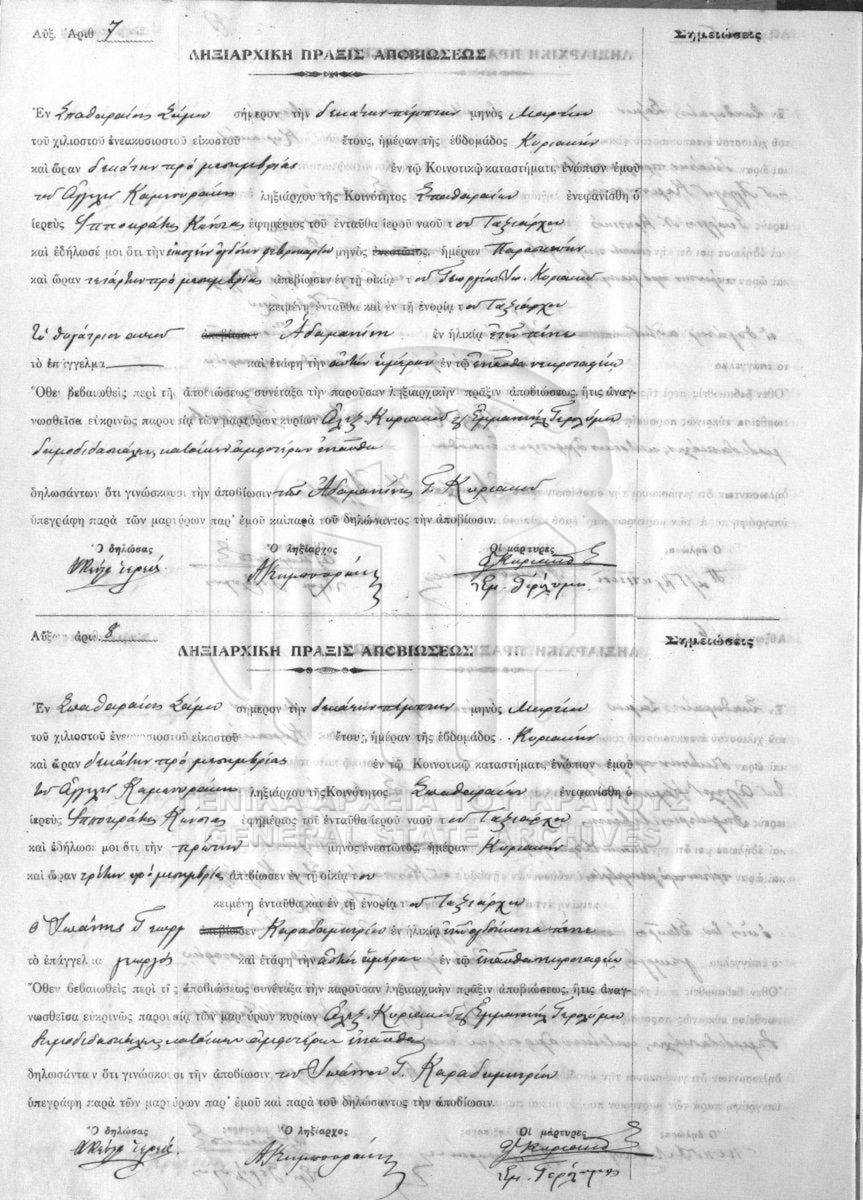 Αὔξ. Ἀριθ 7
Σημειώσεις
ΛΗΞΙΑΡΧΙΚΗ ΠΡΑΞΙΣ ΑΠΟΒΙΩΣΕΩΣ
Ἐν Σπαθαραίοις Σάμου σήμερον τὴν δεκάτην πέμπτην μηνὸς Μαρτίου
τοῦ χιλιοστοῦ ἐνεακοσιοστοῦ εἰκοστοῦ ἔτους, ἡμέραν τῆς ἑβδομάδος Κυριακὴν
καὶ ὥραν δεκάτην πρὸ μεσημβρίας ἐν τῷ Κοινοτικῷ καταστήματι, ἐνώπιον ἐμοῦ
τοῦ ληξιάρχου τῆς Κοινότητος Σπαθαραίων ἐνεφανίσθη ὁ
ἱερεὺς Ἱπποκράτης ἐφημέριος τοῦ ἐνταῦθα ἱεροῦ ναοῦ τοῦ Ταξιάρχου
καὶ ἐδήλωσέ μοι ὅτι τὴν εἰκοστὴν ὀγδόην φεβρουαρίου μηνὸς ἐνεστῶτος, ἡμέραν Παρασκευὴν
καὶ ὥραν τετάρτην πρὸ μεσημβρίας ἀπεβίωσεν ἐν τῇ οἰκίᾳ τοῦ Γεωργίου Κυριακοῦ
κειμένῃ ἐνταῦθα καὶ ἐν τῇ ἐνορίᾳ τοῦ Ταξιάρχου
τὸ θυγάτριον αὐτοῦ Ἀδαμαντίνη ἐν ἡλικίᾳ ἐτῶν πέντε
τὸ ἐπάγγελμα καὶ ἐτάφη τὴν αὐτὴν ἡμέραν ἐν τῷ ἐνταῦθα νεκροταφείῳ
Ὅθεν βεβαιωθεὶς περὶ τῆς ἀποβιώσεως συνέταξα τὴν παροῦσαν ληξιαρχικὴν πρᾶξιν ἀποβιώσεως, ἥτις ἀναγ-
νωσθεῖσα εὐκρινῶς παρουσίᾳ τῶν μαρτύρων κυρίων Ἀλεξ. Κυριακοῦ ἢ Ἐμμανουὴλ Γερολύμου
δημοδιδασκάλων κατοίκων ἀμφοτέρων ἐνταῦθα
δηλωσάντων ὅτι γινώσκουσι τὴν ἀποβίωσιν τῆς Ἀδαμαντίνης Γ. Κυριακοῦ
ὑπεγράφη παρὰ τῶν μαρτύρων παρ' ἐμοῦ καὶ παρὰ τοῦ δηλώσαντος τὴν ἀποβίωσιν.
Ὁ δηλώσας Ὁ ληξίαρχος Οἱ μάρτυρες
ἱερεὺς Κυριακοῦ
Ἐμ. Γερόλυμος
Αὔξ. ἀριθ. 8
Σημειώσεις
ΛΗΞΙΑΡΧΙΚΗ ΠΡΑΞΙΣ ΑΠΟΒΙΩΣΕΩΣ
Ἐν Σπαθαραίοις Σάμου σήμερον τὴν δεκάτην πέμπτην μηνὸς Μαρτίου
τοῦ χιλιοστοῦ ἐνεακοσιοστοῦ εἰκοστοῦ ἔτους, ἡμέραν τῆς ἑβδομάδος Κυριακὴν
καὶ ὥραν δεκάτην πρὸ μεσημβρίας ἐν τῷ Κοινοτικῷ καταστήματι, ἐνώπιον ἐμοῦ
τοῦ ληξιάρχου τῆς Κοινότητος Σπαθαραίων ἐνεφανίσθη ὁ
ΓΕΝΙΚΑ ΑΡΧΕΙΑ ΤΟΥ ΚΡΑΤΟΥΣ
ἱερεὺς Ἱπποκράτης ἐφημέριος τοῦ ἐνταῦθα ἱεροῦ ναοῦ τοῦ Ταξιάρχου
GENERAL STATE ARCHIVES
καὶ ἐδήλωσέ μοι ὅτι τὴν πρώτην μηνὸς ἐνεστῶτος, ἡμέραν Κυριακὴν
καὶ ὥραν τρίτην πρὸ μεσημβρίας ἀπεβίωσεν ἐν τῇ οἰκίᾳ του
κειμένῃ ἐνταῦθα καὶ ἐν τῇ ἐνορίᾳ τοῦ Ταξιάρχου
ὁ Ἰωάννης Γεωργ Καραδημητρίου ἐν ἡλικίᾳ ἐτῶν ὀγδοήκοντα πέντε
τὸ ἐπάγγελμα γεωργὸς καὶ ἐτάφη τὴν αὐτὴν ἡμέραν ἐν τῷ ἐνταῦθα νεκροταφείῳ
Ὅθεν βεβαιωθεὶς περὶ τῆς ἀποβιώσεως συνέταξα τὴν παροῦσαν ληξιαρχικὴν πρᾶξιν ἀποβιώσεως, ἥτις ἀναγ-
νωσθεῖσα εὐκρινῶς παρουσίᾳ τῶν μαρτύρων κυρίων Ἀλεξ. Κυριακοῦ ἢ Ἐμμανουὴλ Γερολύμου
δημοδιδασκάλων κατοίκων ἀμφοτέρων ἐνταῦθα
δηλωσάντων ὅτι γινώσκουσι τὴν ἀποβίωσιν τοῦ Ἰωάννου Γ. Καραδημητρίου
ὑπεγράφη παρὰ τῶν μαρτύρων παρ' ἐμοῦ καὶ παρὰ τοῦ δηλώσαντος τὴν ἀποβίωσιν.
Ὁ δηλώσας Ὁ ληξίαρχος Οἱ μάρτυρες
ἱερεὺς Κυριακοῦ
Ἐμ. Γερόλυμος